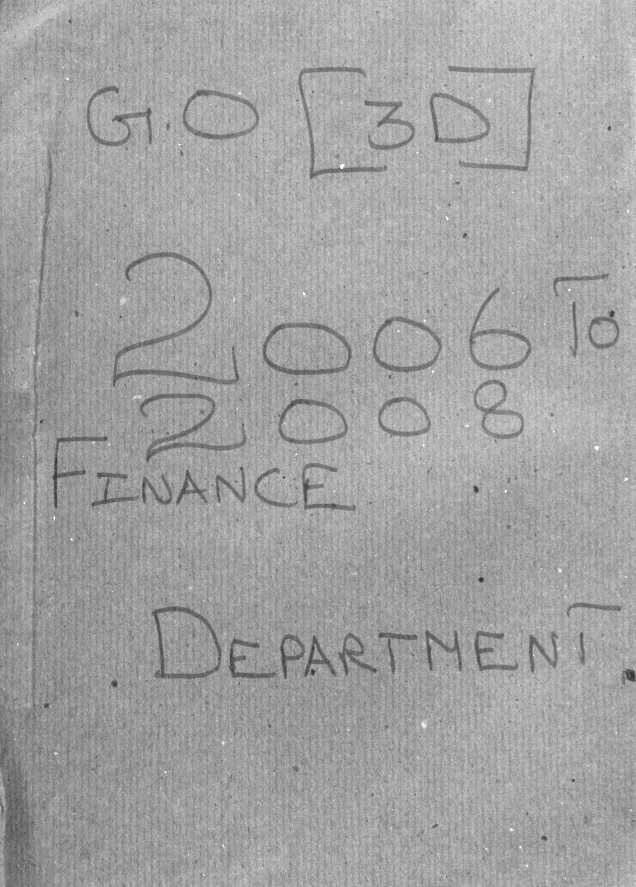 G.O [3D]
2006 To
2008
FINANCE
DEPARTMENT